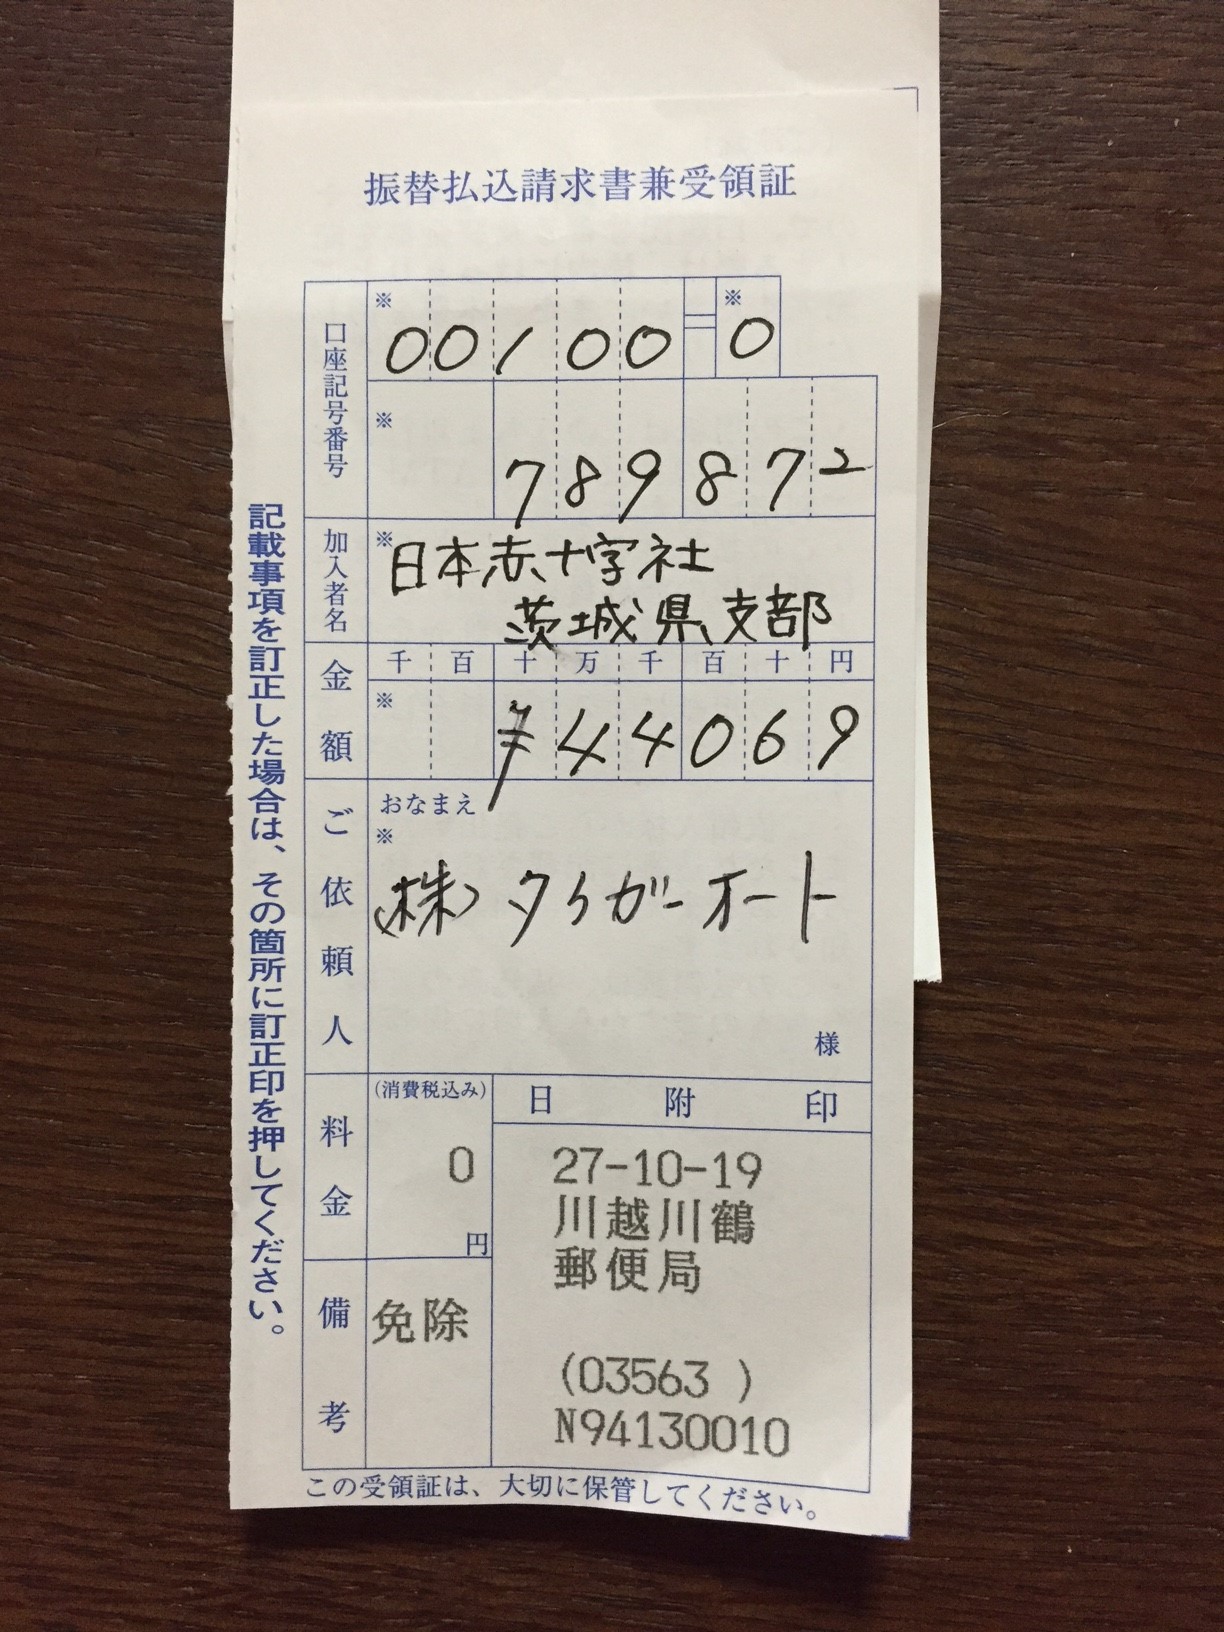 振替払込請求書兼受領証
口座記号番号
※ 00100=※ 0
※ 789872
加入者名
※日本赤十字社
茨城県支部
金額
千 百 十 万 千 百 十 円
※ ¥44069
ご依頼人
おなまえ
※
(株)タイガーオート
様
料金
(消費税込み)
0
円
日附印
27-10-19
川越川鶴
郵便局
(03563 )
N94130010
備考
免除
この受領証は、大切に保管してください。
記載事項を訂正した場合は、その箇所に訂正印を押してください。